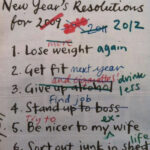 New Year's Resolutions
for 2009 2011 2012
more
1. Lose weight again
2. Get fit next year
drink less
3. Give up alcohol
Find job
4. Stand up to boss
Try to ex-
5. Be nicer to my wife
life
6. Sort out junk in shed